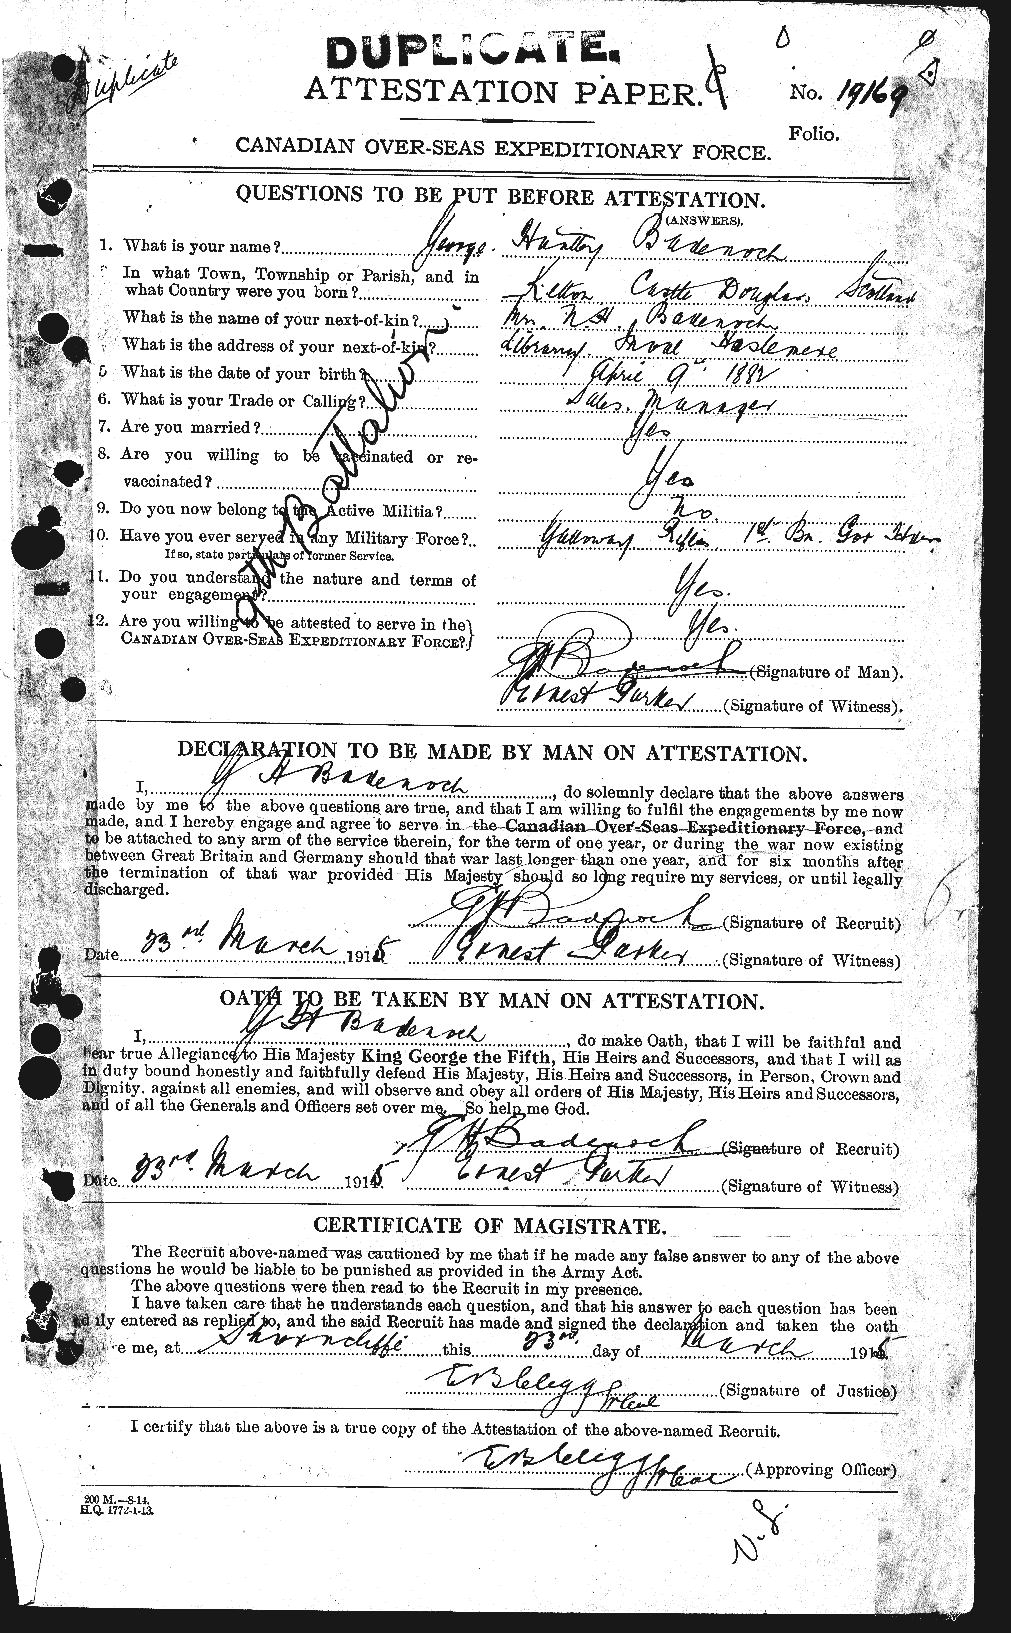 DUPLICATE.
Duplicate
ATTESTATION PAPER.
No. 19169
Folio.
CANADIAN OVER-SEAS EXPEDITIONARY FORCE.
QUESTIONS TO BE PUT BEFORE ATTESTATION.
(ANSWERS).
1. What is your name? George Huntley Badenoch
In what Town, Township or Parish, and in
what Country were you born? Kelton Castle Douglas, Scotland
What is the name of your next-of-kin? Mrs. N H Badenoch
What is the address of your next-of-kin? Library Haslemere
5 What is the date of your birth? April 9th 1882
6. What is your Trade or Calling? Sales. Manager
7. Are you married? Yes
8. Are you willing to be vaccinated or re-
vaccinated? Yes
9. Do you now belong to the Active Militia? No.
10. Have you ever served in any Military Force? Galloway Rifles 1st Bn. Gor
If so, state particulars of former Service.
11. Do you understand the nature and terms of
your engagement? Yes.
12. Are you willing to be attested to serve in the
CANADIAN OVER-SEAS EXPEDITIONARY FORCE? Yes.
9th Battalion
G H Badenoch (Signature of Man).
Ernest Parker (Signature of Witness).
DECLARATION TO BE MADE BY MAN ON ATTESTATION.
I, G H Badenoch, do solemnly declare that the above answers
made by me to the above questions are true, and that I am willing to fulfil the engagements by me now
made, and I hereby engage and agree to serve in the Canadian Over-Seas Expeditionary Force, and
to be attached to any arm of the service therein, for the term of one year, or during the war now existing
between Great Britain and Germany should that war last longer than one year, and for six months after
the termination of that war provided His Majesty should so long require my services, or until legally
discharged.
G H Badenoch (Signature of Recruit)
Date 23rd March 1915 Ernest Parker (Signature of Witness)
OATH TO BE TAKEN BY MAN ON ATTESTATION.
I, G H Badenoch, do make Oath, that I will be faithful and
bear true Allegiance to His Majesty King George the Fifth, His Heirs and Successors, and that I will as
in duty bound honestly and faithfully defend His Majesty, His Heirs and Successors, in Person, Crown and
Dignity, against all enemies, and will observe and obey all orders of His Majesty, His Heirs and Successors,
and of all the Generals and Officers set over me. So help me God.
G H Badenoch (Signature of Recruit)
Date 23rd March 1915 Ernest Parker (Signature of Witness)
CERTIFICATE OF MAGISTRATE.
The Recruit above-named was cautioned by me that if he made any false answer to any of the above
questions he would be liable to be punished as provided in the Army Act.
The above questions were then read to the Recruit in my presence.
I have taken care that he understands each question, and that his answer to each question has been
duly entered as replied to, and the said Recruit has made and signed the declaration and taken the oath
re me, at Shorncliffe this 23rd day of March 1915
E B Clegg (Signature of Justice)
I certify that the above is a true copy of the Attestation of the above-named Recruit.
E B Clegg (Approving Officer)
200 M.—8-14.
H.Q. 1772-1-13.